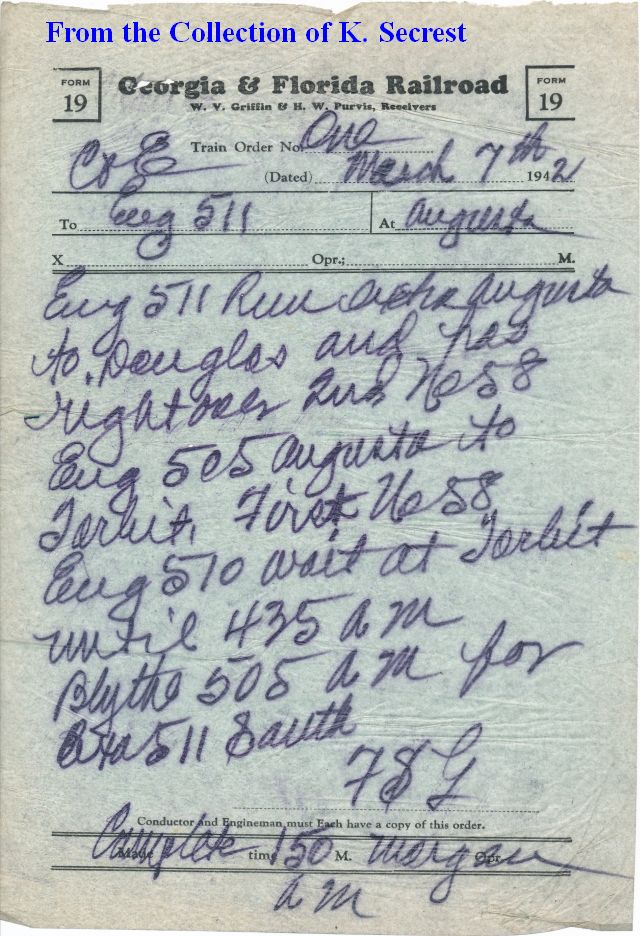 From the Collection of K. Secrest
FORM 19
Georgia & Florida Railroad
FORM 19
W. V. Griffin & H. W. Purvis, Receivers
Train Order No. One
C & E
(Dated) March 7th 1942
To Eng 511 At Augusta
X Opr.; M.
Eng 511 Run Extra Augusta
to Douglas and has
right over 2nd No 58
Eng 505 Augusta to
Torbit. First No 58
Eng 510 wait at Torbit
until 435 AM
Blythe 505 AM for
Exa 511 South
Conductor and Engineman must Each have a copy of this order.
Made Complete time 150 M. Morgan Opr
AM